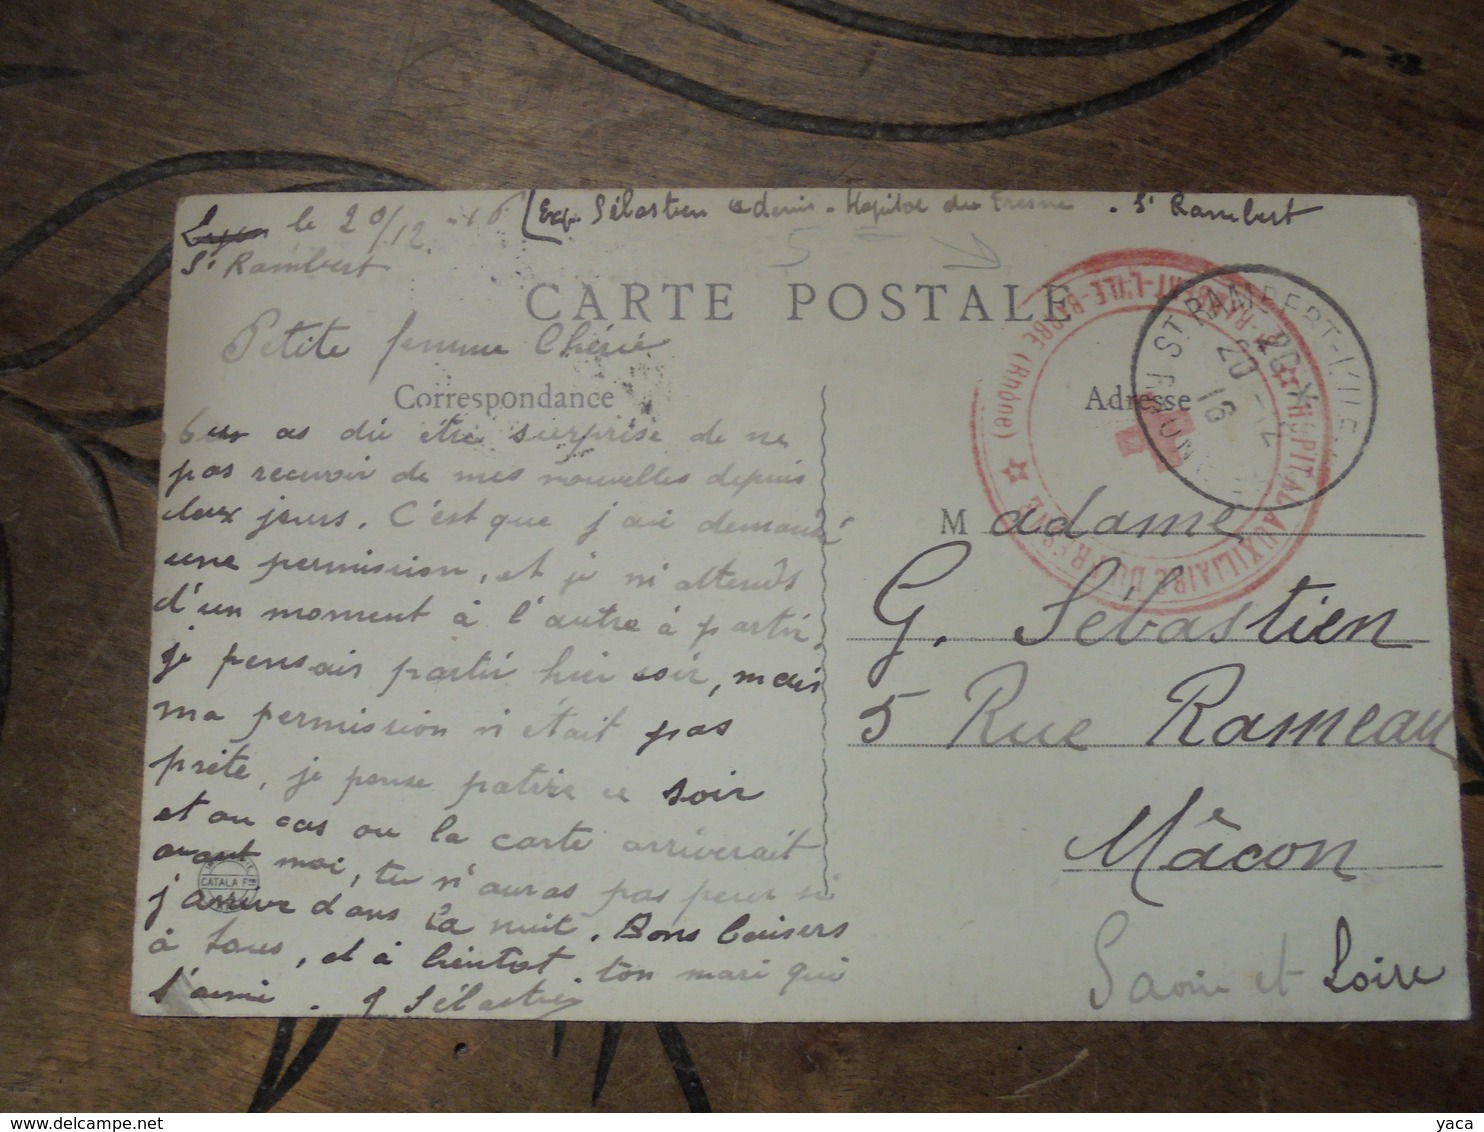 Lyon le 20/12 - 16
St Rambert
Exp. Sébastien - Hôpital du Fresne. St Rambert
5
CARTE POSTALE
Petite femme Chérie
Correspondance
Adresse
Tu as dû être surprise de ne
pas recevoir de mes nouvelles depuis
deux jours. C'est que j'ai demandé
une permission, et je m'attends
d'un moment à l'autre à partir,
je pensais partir hier soir, mais
ma permission n'était pas
prête, je pense patire ce soir
et au cas ou la carte arriverait
avant moi, tu n'auras pas peur si
j'arrive dans la nuit. Bons baisers
à tous, et à bientot. ton mari qui
t'aime. G Sébastien
Madame
G. Sébastien
5 Rue Rameau
Mâcon
Saone et Loire
HOPITAL AUXILIAIRE DU FRESNE ☆ ST RAMBERT-L'ILE-BARBE (Rhône) ☆
ST RAMBERT-L'ILE-B
20 -12
16
CATALA Fres
yaca